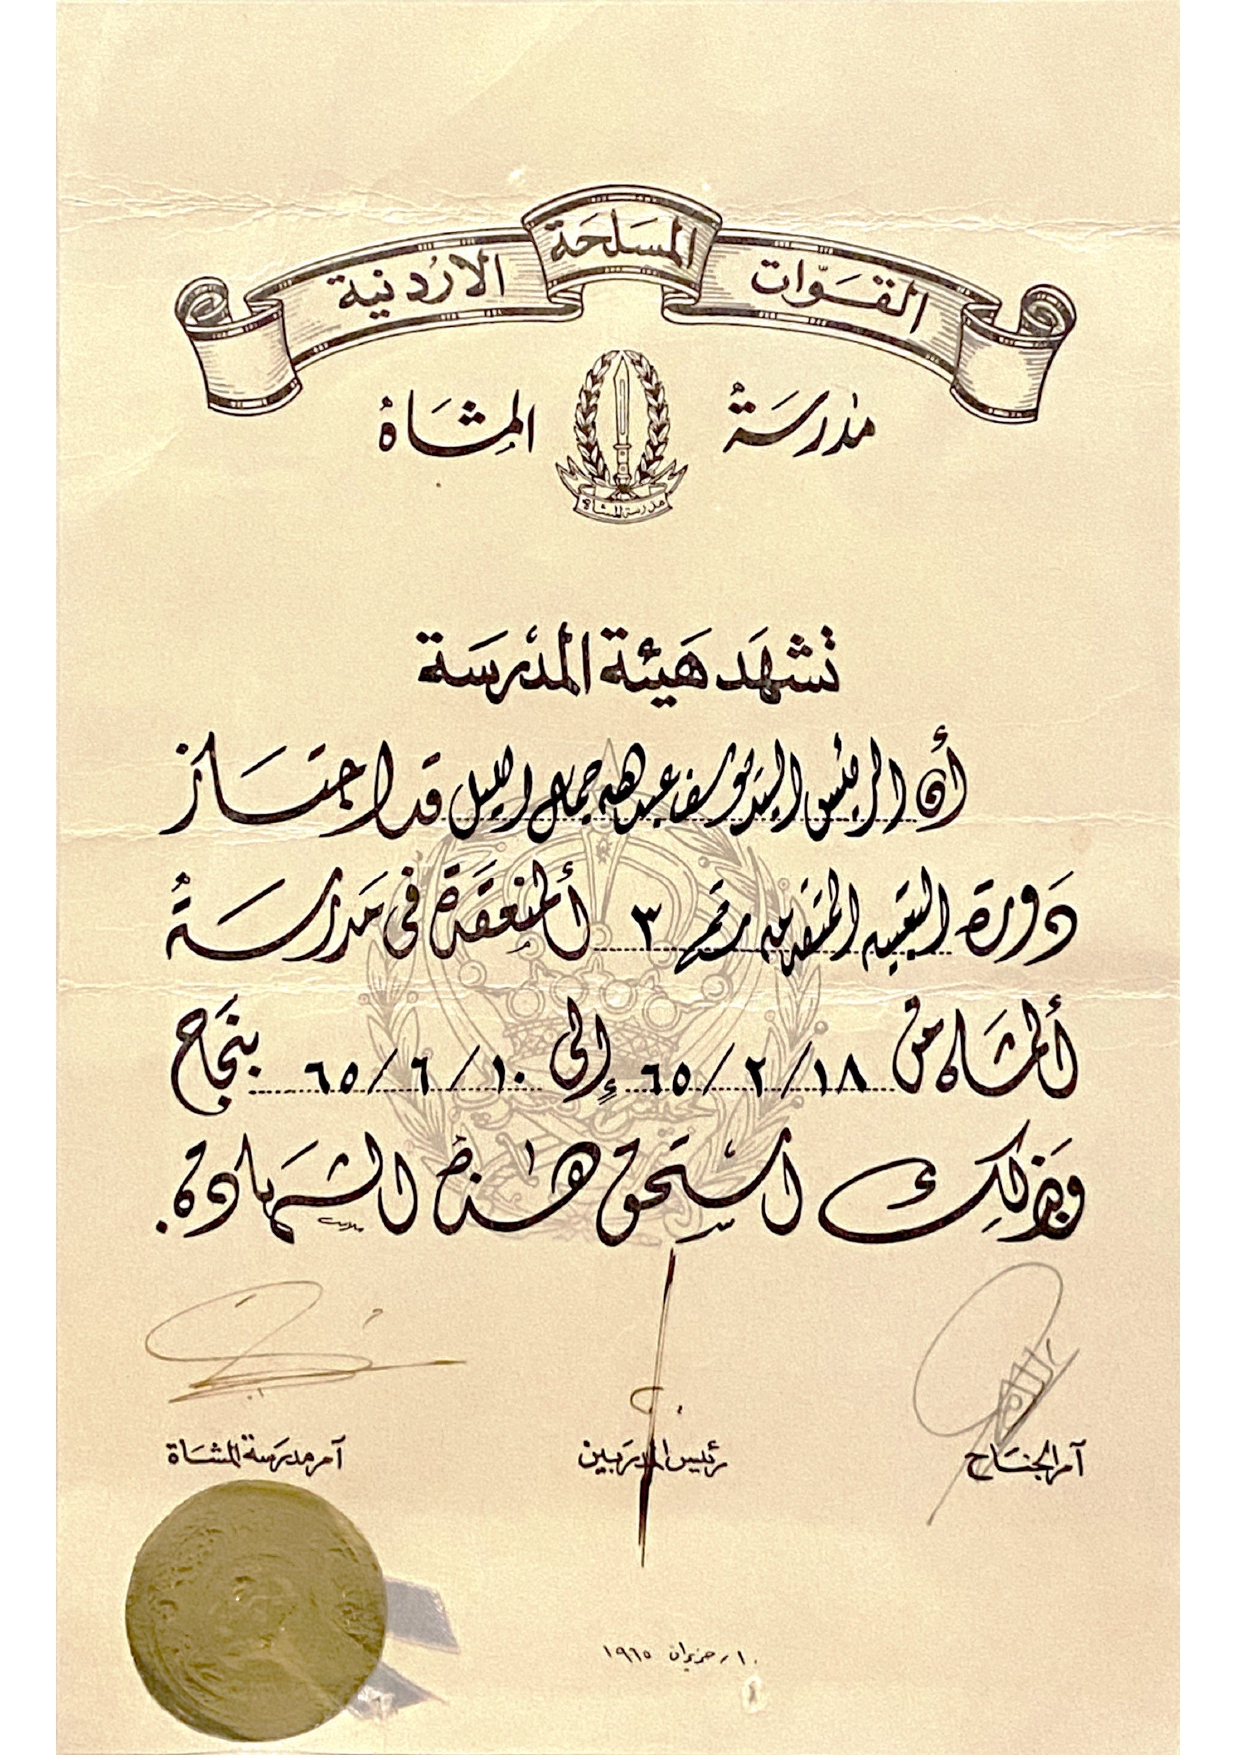 القوات المسلحة الاردنية
مدرسة المشاة
مدرسة المشاة
تشهد هيئة المدرسة
أن الرئيس السيد يوسف عبدالله جمال قد اجتاز
دورة التعبيه المتقدمه رقم ٣ ألمنعقدة في مدرسة
ألمشاه من ١٨/٢/٦٥ إلى ١٠/٦/٦٥ بنجاح
وبذلك استحق هذه الشهادة.
آمر الجناح
رئيس المدربين
آمر مدرسة المشاة
١٠ حزيران ١٩٦٥